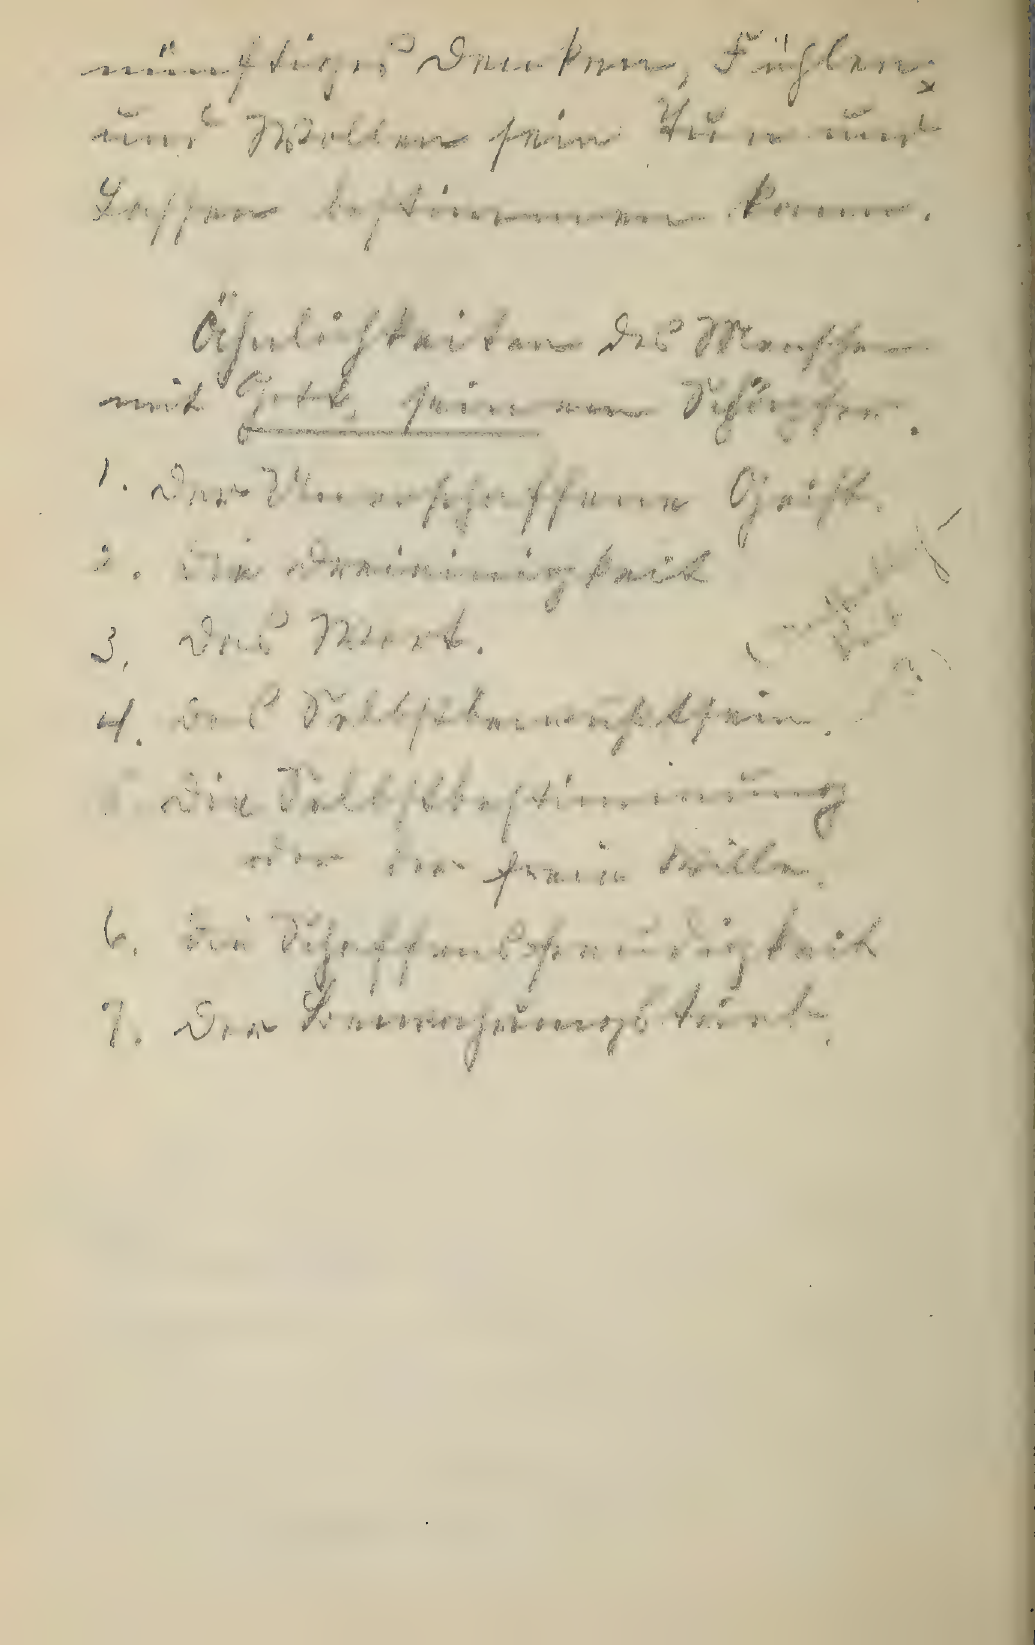 nünftiges Denken, Fühlen
und Wollen sein Tun und
Lassen bestimmen kann.
Ähnlichkeiten des Menschen
mit Gott, seinem Schöpfer.
1. Der Unerschaffene Geist.
2. Die Dreieinigkeit
3. Das Wort.
4. Das Selbstbewußtsein.
5. Die Selbstbestimmung
oder der freie Wille.
6. Die Schaffensfreudigkeit
7. Der